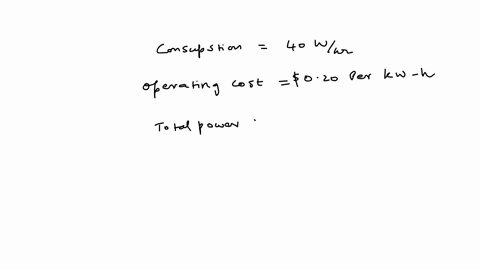 Consupstion = 40 W/hr
operating cost = $0.20 Per kw-h
Total power .